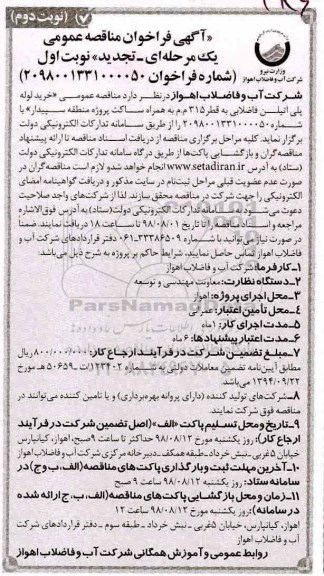 (نوبت دوم)
«آگهی فراخوان مناقصه عمومی
یک مرحله‌ای ـ تجدید» نوبت اول
(شماره فراخوان ۲۰۹۸۰۰۱۳۳۱۰۰۰۰۵۰)
وزارت نیرو
شرکت آب و فاضلاب اهواز
شرکت آب و فاضلاب اهواز در نظر دارد مناقصه عمومی «خرید لوله
پلی اتیلن فاضلابی به قطر ۳۱۵ م م به همراه ساکت پروژه منطقه سپیدار» با
شماره ۲۰۹۸۰۰۱۳۳۱۰۰۰۰۵۰ را از طریق سامانه تدارکات الکترونیکی دولت
برگزار نماید. کلیه مراحل برگزاری مناقصه از دریافت اسناد مناقصه تا ارائه پیشنهاد
مناقصه‌گران و بازگشایی پاکت‌ها از طریق درگاه سامانه تدارکات الکترونیکی دولت
(ستاد) به آدرس www.setadiran.ir انجام خواهد شد و لازم است مناقصه گران در
صورت عدم عضویت قبلی مراحل ثبت‌نام در سایت مذکور و دریافت گواهینامه امضای
الکترونیکی را جهت شرکت در مناقصه محقق سازند. لذا از شرکت‌های واجد صلاحیت
دعوت می‌شود به سامانه تدارکات الکترونیکی دولت (ستاد) به آدرس فوق‌الاشاره
مراجعه و اسناد مناقصه را تا تاریخ ۹۸/۰۸/۰۱ تا ساعت ۱۸ دریافت نمایند. ضمناً
در صورت نیاز می‌توانید با شماره ۳۳۳۸۶۵۰۹-۰۶۱ دفتر قراردادهای شرکت آب و
فاضلاب اهواز تماس حاصل نمایید، شرایط حاکم بر پروژه به شرح ذیل می‌باشد.
۱ـ کارفرما: شرکت آب و فاضلاب اهواز
۲ـ دستگاه نظارت: معاونت مهندسی و توسعه
۳ـ محل اجرای پروژه: اهواز
۴ـ محل تأمین اعتبار: عمرانی
۵ـ مدت اجرای کار: ۱ ماه
۶ـ مدت اعتبار پیشنهادها: ۶ ماه
۷ـ مبلغ تضمین شرکت در فرآیند ارجاع کار: ۸۰۰/۰۰۰/۰۰۰ ریال
مطابق آیین‌نامه تضمین معاملات دولتی به شماره ۱۲۳۴۰۲/ت ۵۰۶۵۹ هـ مورخ
۱۳۹۴/۰۹/۲۲ می‌باشد.
۸ـ شرکت‌های تولید کننده (دارای پروانه بهره‌برداری) و یا تامین کننده می‌توانند در
مناقصه فوق شرکت نمایند.
۹ـ تاریخ و محل تسلیم پاکت «الف» (اصل تضمین شرکت در فرآیند
ارجاع کار): روز یکشنبه مورخ ۹۸/۰۸/۱۲ حداکثر تا ساعت ۹ صبح، اهواز، کیانپارس
خیابان ۵ غربی ـ نبش خرداد ـ طبقه همکف ـ دبیرخانه مرکزی شرکت آب و فاضلاب اهواز
۱۰ـ آخرین مهلت ثبت و بارگذاری پاکت‌های مناقصه (الف، ب و ج) در
سامانه ستاد: روز یکشنبه ۹۸/۰۸/۱۲ ساعت ۹ صبح
۱۱ـ زمان و محل بازگشایی پاکت‌های مناقصه (الف، ب، ج ارائه شده
در سامانه): روز یکشنبه مورخ ۹۸/۰۸/۱۲ ساعت ۱۲
اهواز، کیانپارس، خیابان ۵ غربی ـ نبش خرداد ـ طبقه سوم ـ دفتر قراردادهای شرکت
آب و فاضلاب اهواز
روابط عمومی و آموزش همگانی شرکت آب و فاضلاب اهواز